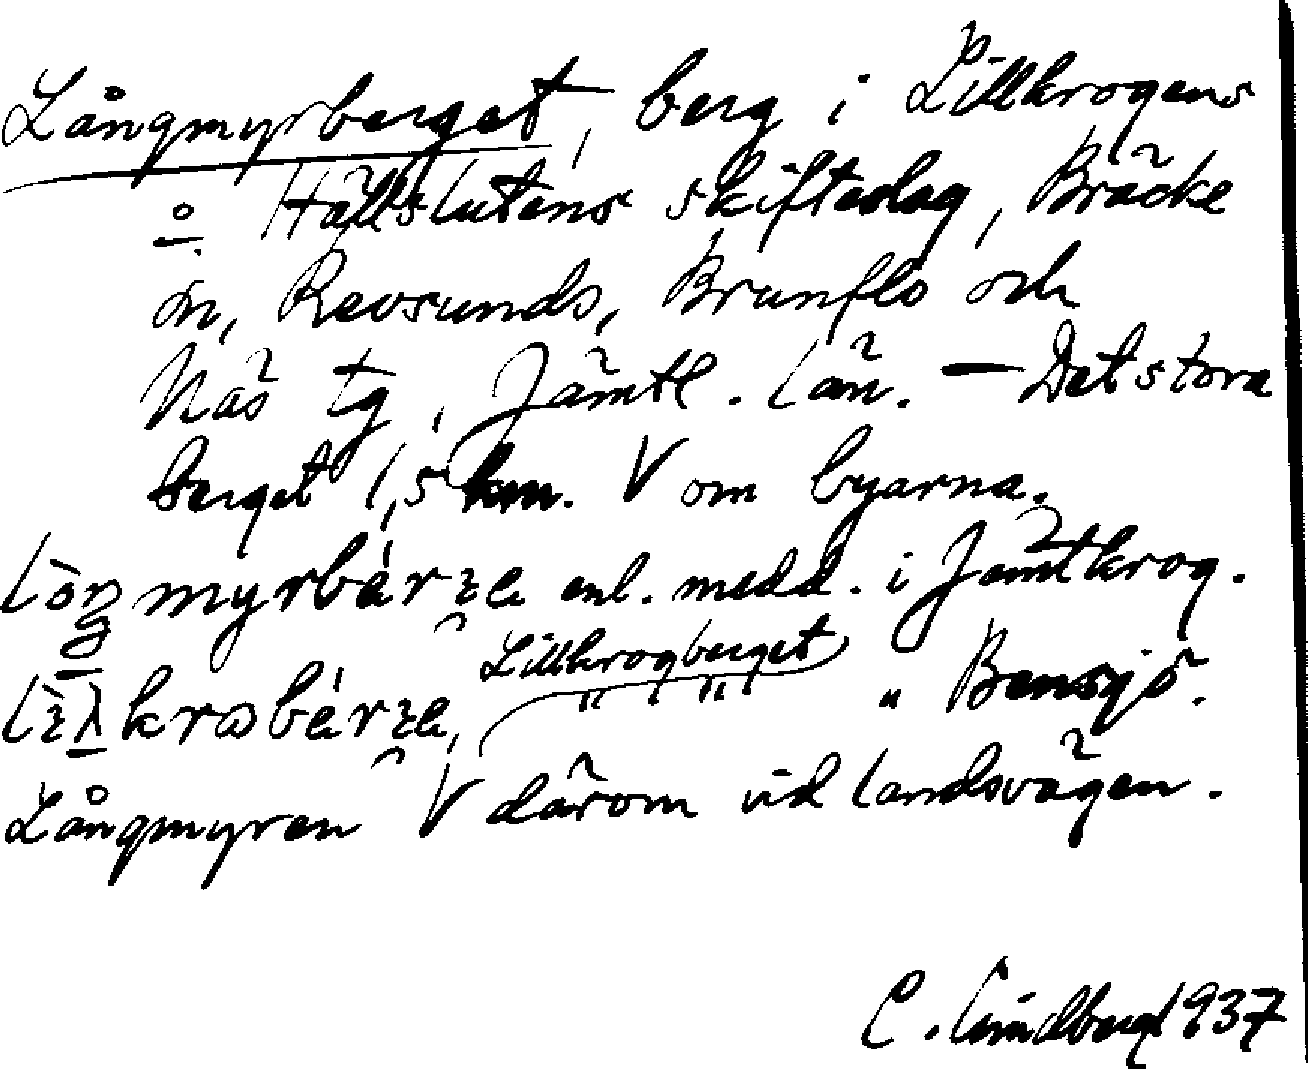 Långmyrberget, berg i Lillkrogens
o. Hällslutens skifteslag, Bräcke
sn, Revsunds, Brunflo och
Näs tg, Jämtl. län. — Det stora
berget 1,5 km. V om byarna.
enl. medd. i Jämtkrog.
Lillkrogberget
" " " Bensjö.
Långmyren V därom vid landsvägen.
C. Lindberg 1937